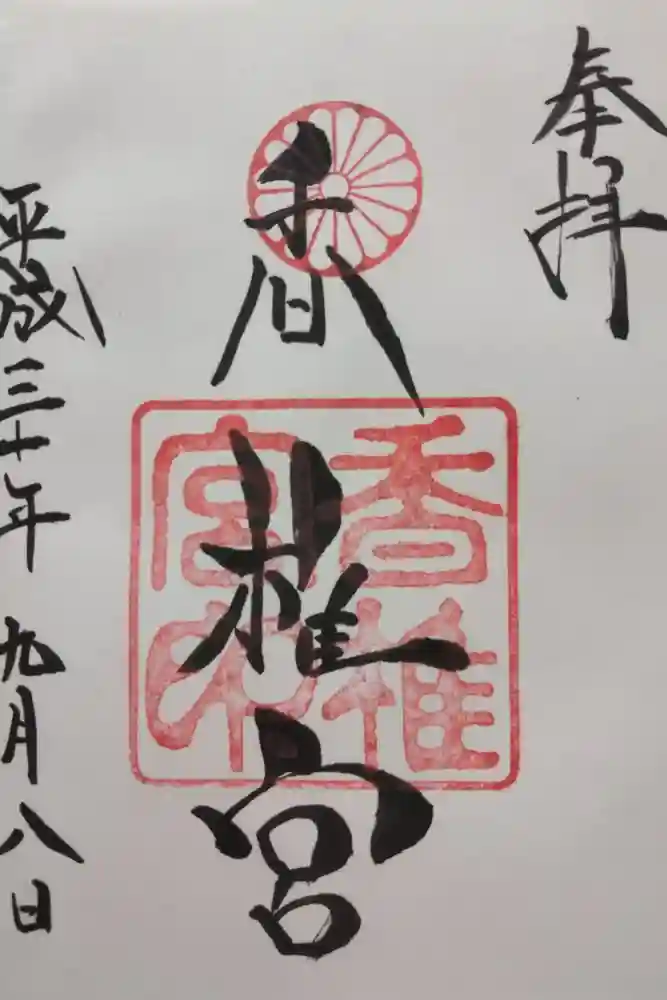 奉拝
香椎宮
香椎
宮印
平成三十年九月八日